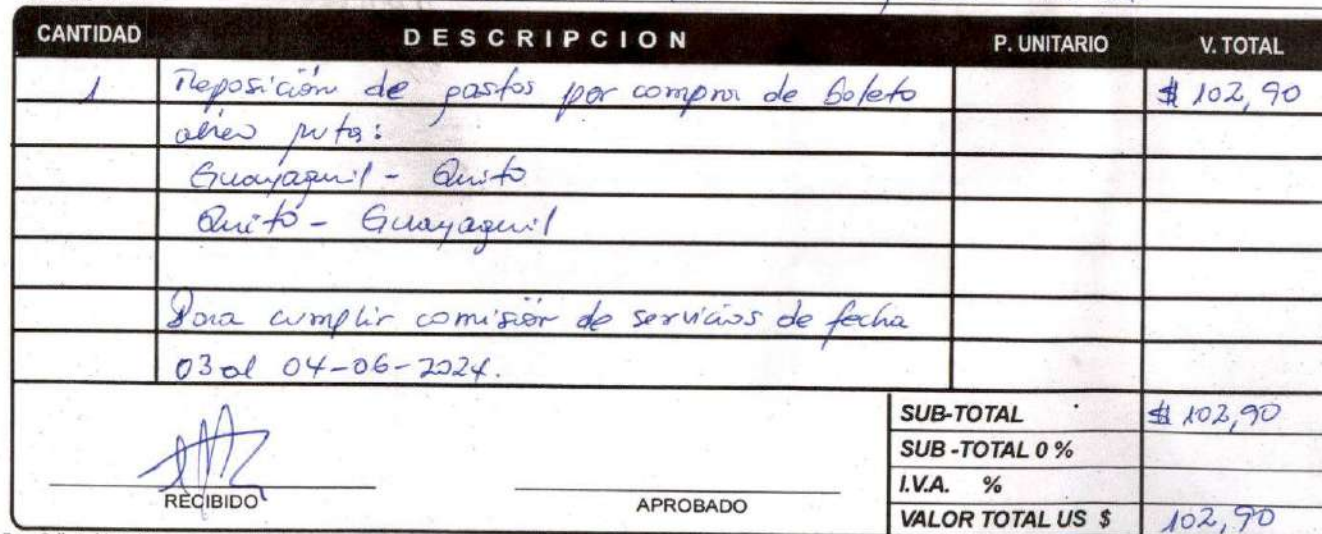 CANTIDAD DESCRIPCION P. UNITARIO V. TOTAL
1 Reposición de gastos por compra de boleto $ 102,90
aéreo ruta:
Guayaquil - Quito
Quito - Guayaquil
Para cumplir comisión de servicios de fecha
03 al 04-06-2024.
SUB-TOTAL $ 102,90
SUB-TOTAL 0 %
I.V.A. %
RECIBIDO APROBADO
VALOR TOTAL US $ 102,90